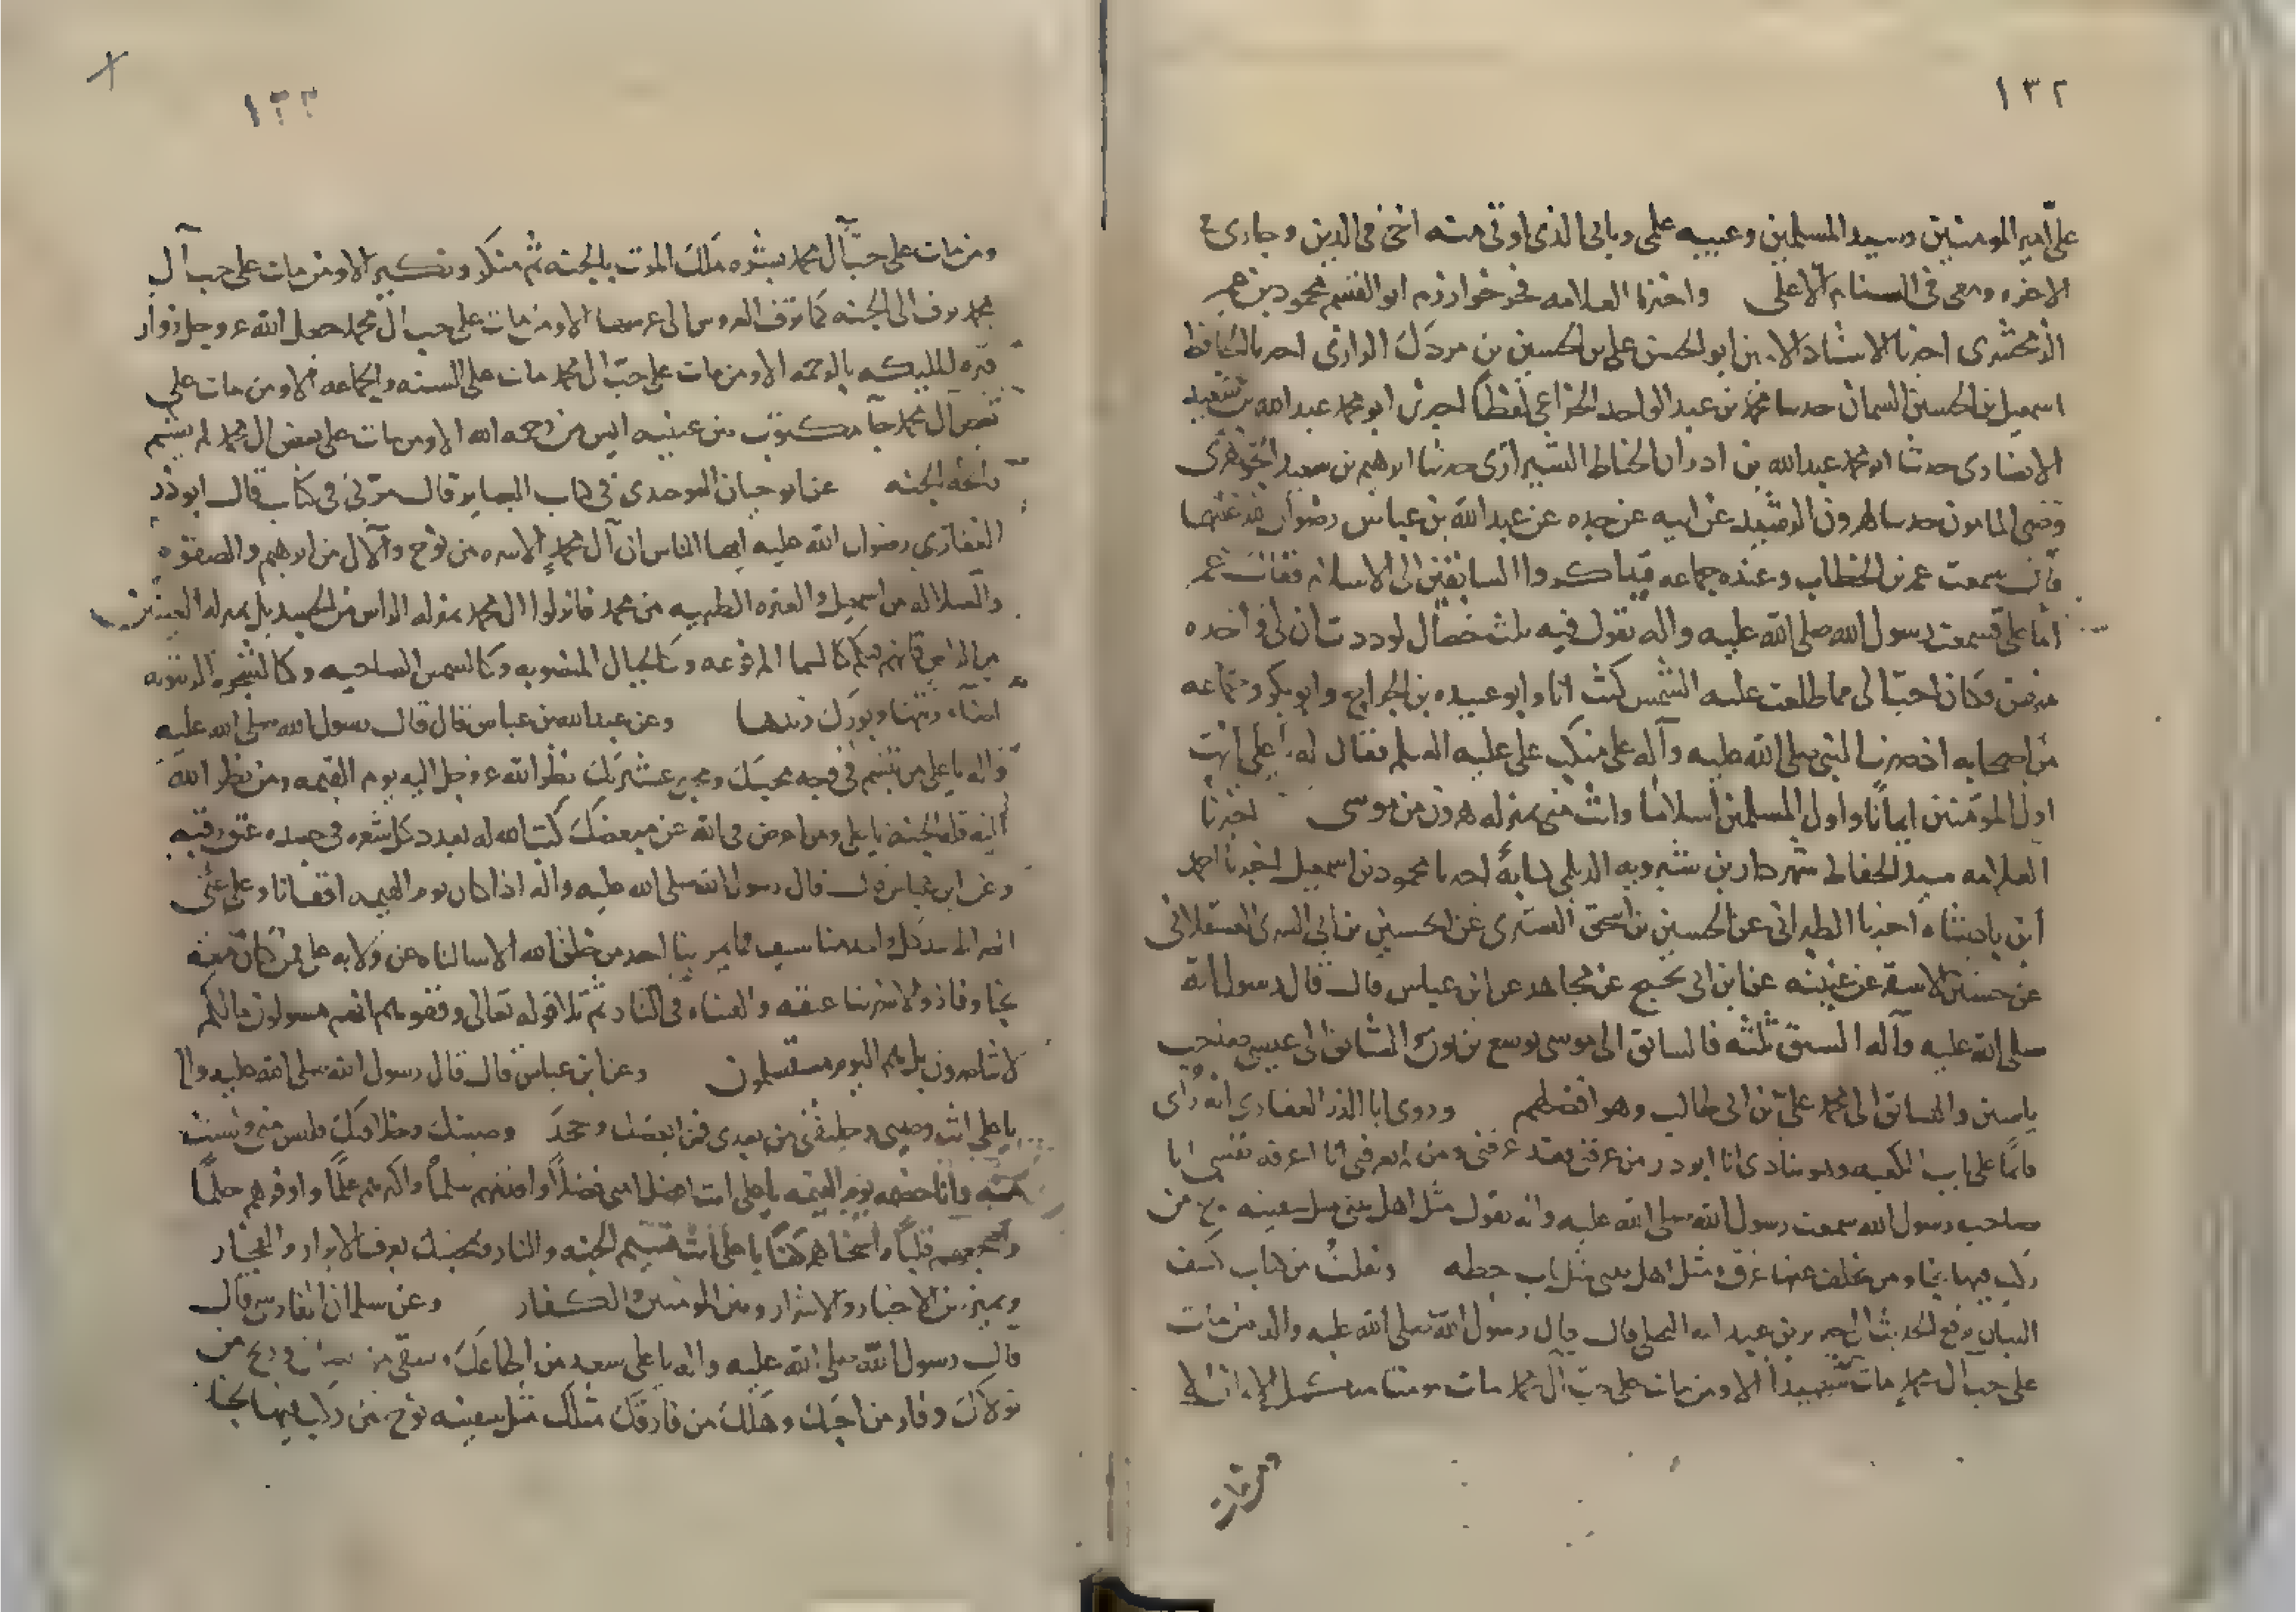 ١٣٢
على أمير المومنين وسيد المسلمين وعيبه علمي وبابي الذي اوتى منه اخي في الدين وجاري في
الاخره ومعي في السنام الاعلى واخبرنا العلامه فخر خوارزم ابو القسم محمود بن عمر
الزمخشري اخبرنا الاستاذ الامين ابو الحسن على بن الحسين بن مردك الرازي اخبرنا الحافظ
اسمعيل بن الحسين السمان حدثنا محمد بن عبد الواحد الخزاعي لفظا اخبرني ابو محمد عبد الله بن سعيد
الانصاري حدثنا ابو محمد عبد الله بن ادران الخناط الشيرازي حدثنا ابرهيم بن سعيد الجوهري
وصي المامون حدثنا هرون الرشيد عن ابيه عن جده عن عبد الله بن عباس رضوان
قال سمعت عمر بن الخطاب وعنده جماعه فتذاكروا السابقين الى الاسلام فقال عمر
اما على فسمعت رسول الله صلى الله عليه واله يقول فيه ثلث خصال لوددت ان لي واحده
منهن فكان احب الى مما طلعت عليه الشمس كنت انا وابو عبيده بن الجراح وابو بكر وجماعه
من اصحابه اذ ضرب النبي صلى الله عليه وآله على منكب على عليه السلم فقال له يا على انت
اول المومنين ايمانا واول المسلمين اسلاما وانت مني بمنزله هرون من موسى اخبرنا
العلامه سيد الحفاظ شهردار بن شيرويه الديلمي اخبرنا محمود بن اسمعيل اخبرنا احمد
ابن بادشاه اخبرنا الطبراني عن الحسين بن اسحق التستري عن الحسين بن ابي السري العسقلاني
عن حسين الاشقر عن عيينه عن ابن ابي نجيح عن مجاهد عن ابن عباس قال قال رسول الله
صلى الله عليه وآله السبق ثلثه فالسابق الى موسى يوسع بن نون السابق الى عيسى صاحب
ياسين والسابق الى محمد على بن ابي طالب وهو افضلهم وروى ابا الذر الغفاري انه رأى
قائما على باب الكعبه وهو ينادي انا ابو ذر من عرفني فقد عرفني ومن لم يعرفني انا اعرفه نفسي انا
صاحب رسول الله سمعت رسول الله صلى الله عليه واله يقول مثل اهل بيتي مثل سفينه نوح من
ركب فيها نجا ومن تخلف عنها غرق ومثل اهل بيتي مثل باب حطه ونقلت من كتاب كشف
البيان رفع الحديث الى جرير بن عبد الله البجلي قال قال رسول الله صلى الله عليه واله من مات
على حب آل محمد مات شهيدا الا ومن مات على حب آل محمد مات مومنا مستكمل الايمان الا
ومن مات
١٣٣
ومن مات على حب آل محمد بشره ملك الموت بالجنه ثم منكر ونكير الا ومن مات على حب آل
محمد يزف الى الجنه كما تزف العروس الى عرسها الا ومن مات على حب ال محمد جعل الله عز وجل زوار
قبره الملئكه بالرحمه الا ومن مات على حب ال محمد مات على السنه والجماعه الا ومن مات على
بغض آل محمد جآ مكتوب بين عينيه ايس من رحمه الله الا ومن مات على بغض ال محمد لم يشم
رائحه الجنه عن ابو حيان التوحيدي في كتاب البصاير قال مر بي في كتاب قال ابو ذر
الغفاري رضوان الله عليه ايها الناس ان آل محمد الاسره من نوح والآل من ابرهيم والصفوه
والسلاله من اسمعيل والعتره الطيبه من محمد فانزلوا ال محمد بمنزله الراس من الجسد بل بمنزله العينين
من الراس فانهم فيكم كالسما المرفوعه وكالجبال المنصوبه وكالشمس الضاحيه وكالشجره الزيتونه
اضاء زيتها وبورك زندها وعن عبد الله بن عباس قال قال رسول الله صلى الله عليه
واله يا على من تبسم في وجه محبيك ومحبي عشيرتك نظر الله عز وجل اليه يوم القيمه ومن نظر الله
اليه فله الجنه يا على ومن اعرض في الله عن مبغضك كتب الله له بعدد كل شعره في جسده عتق رقبه
وعن ابن عباس قال قال رسول الله صلى الله عليه واله اذا كان يوم القيمه اقف انا وعلى على
الصراط بيد كل واحد منا سيف فما يمر بنا احد من خلق الله الا سالناه عن ولايه على فمن كان معه
نجا وفاز والا ضربنا عنقه والقيناه في النار ثم تلا قوله تعالى وقفوهم انهم مسولون مالكم
لا تناصرون بل هم اليوم مستسلمون وعن ابن عباس قال قال رسول الله صلى الله عليه وال
يا على انت وصيي وخليفتي من بعدي فمن ابغضك وجحد وصيتك وخلافتك فليس مني ولست
منه وانا خصمه يوم القيمه يا على انت افضل امتي فضلا واقدمهم سلما واكثرهم علما واوفرهم حلما
واشجعهم قلبا واسخاهم كفا يا على انت قسيم الجنه والنار ومحبتك يعرف الابرار والفجار
ويميز بين الاخيار والاشرار وبين المومنين والكفار وعن سلمان الفارسي قال
قال رسول الله صلى الله عليه واله يا على سعد من اطاعك وشقى من عصاك وربح من
تولاك وفاز من احبك وهلك من فارقك مثلك مثل سفينه نوح من ركب فيها نجا